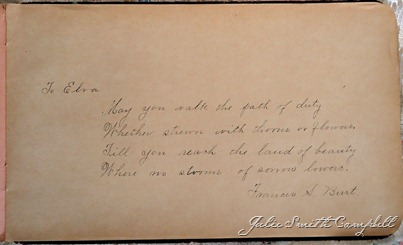 To Elva
May you walk the path of duty
Whether strewn with thorns or flowers
Till you reach the land of beauty
Where no storms of sorrow lowers.
Francis S. Burt.
Julie Smith Campbell